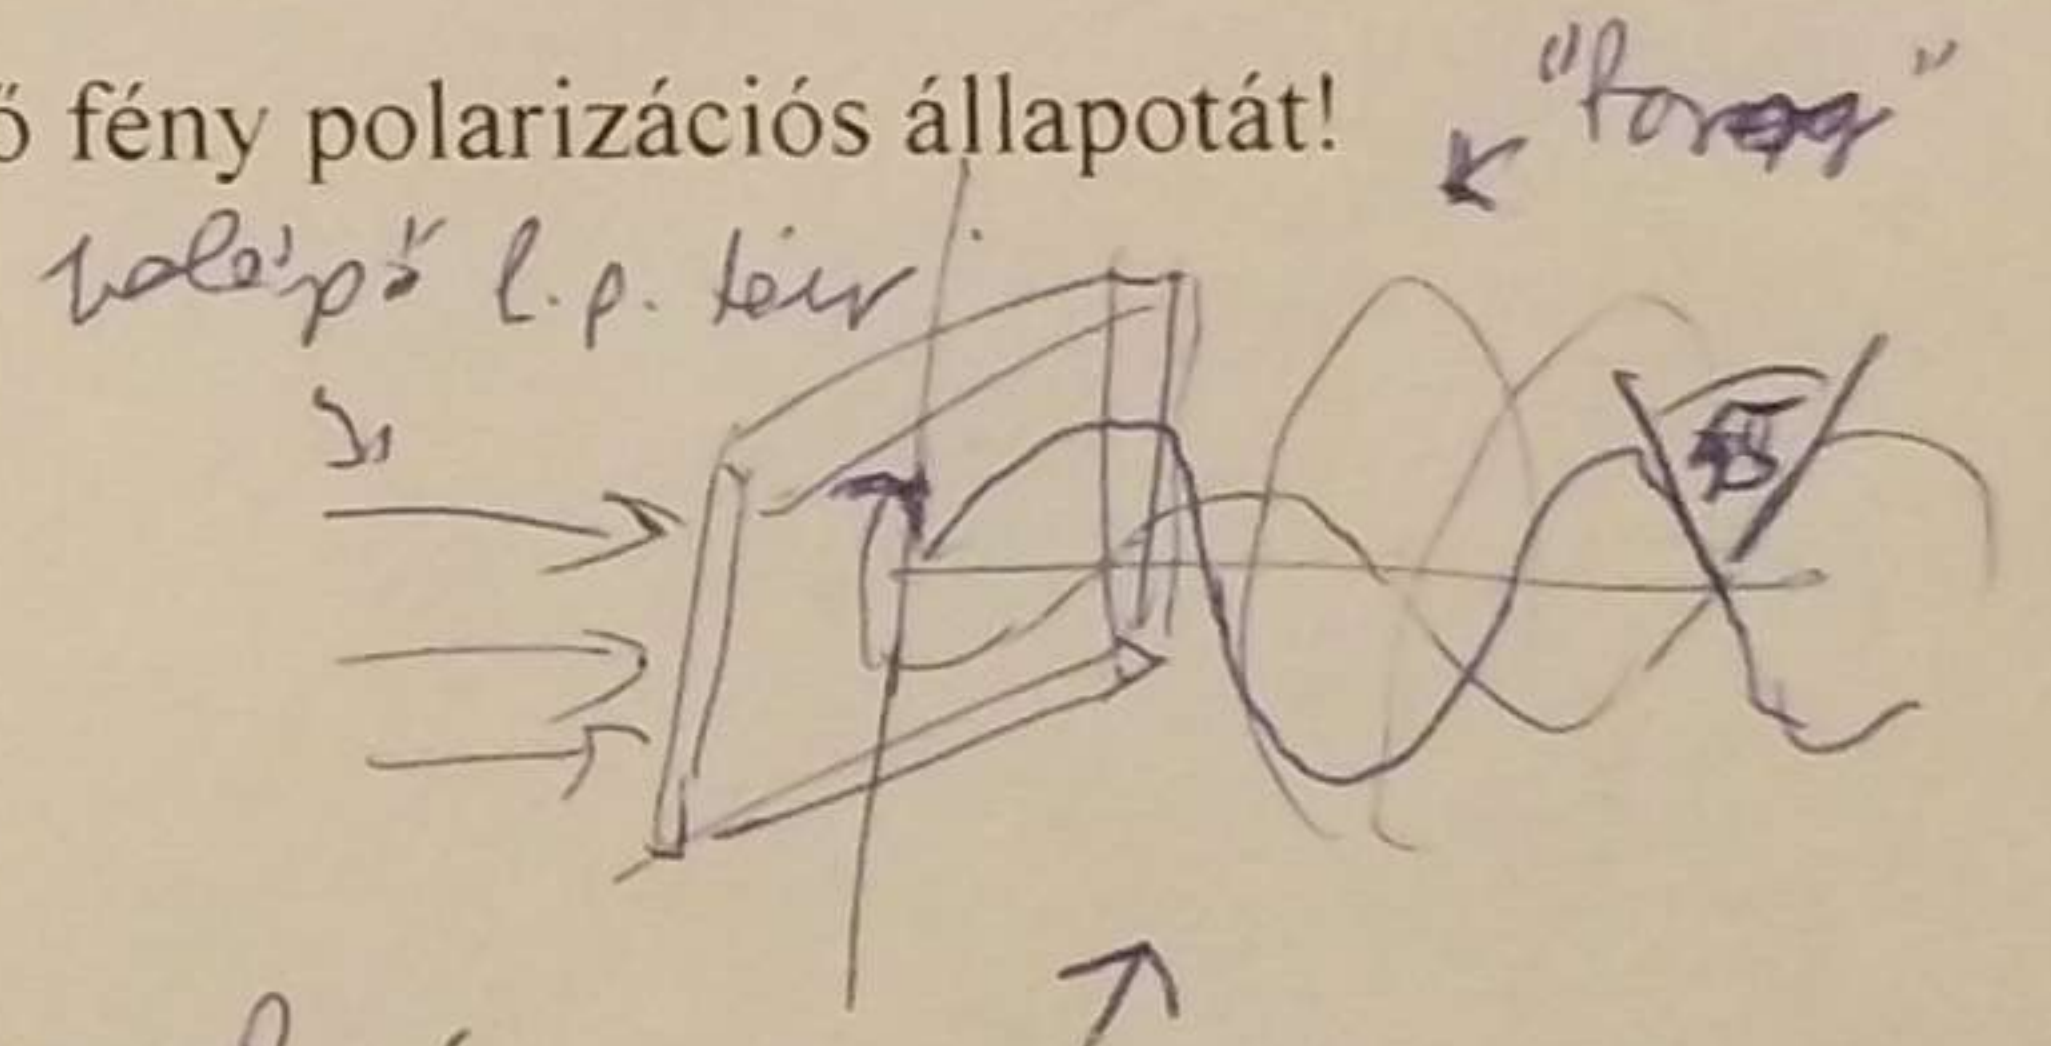 ő fény polarizációs állapotát!
"forog"
belépő l.p. tér